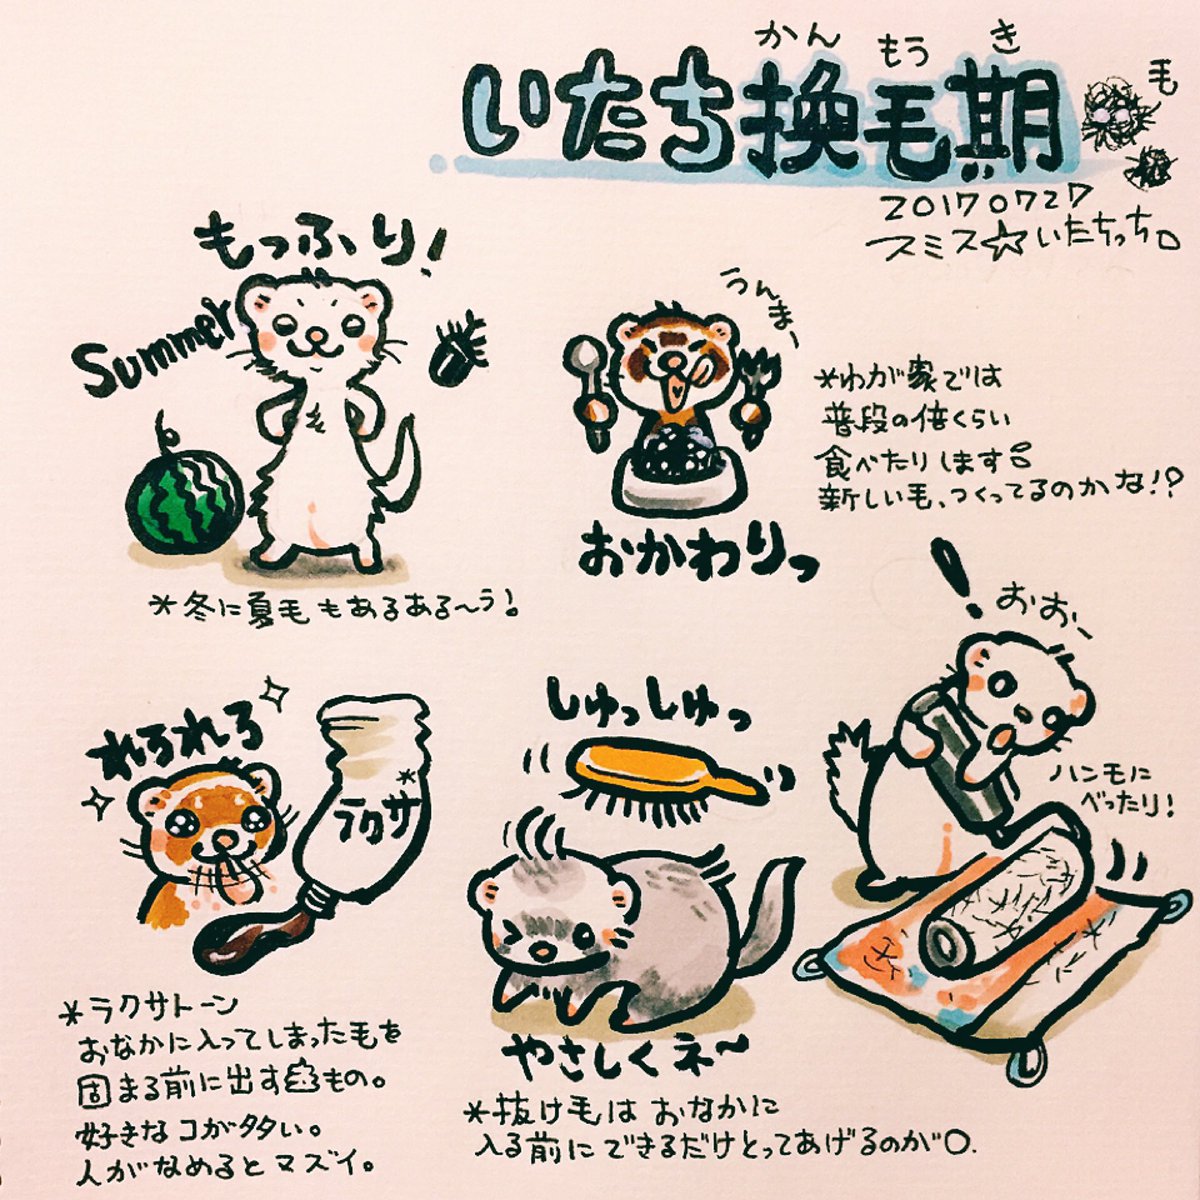 かんもうき
いたち換毛期
毛
20170727
スミス☆いたちっち。
もっふり!
Summer
*冬に夏毛もあるある〜う!
うんまー
おかわりっ
*わが家では
普段の倍くらい
食べたりします。
新しい毛、つくってるのかな!?
れろれろ
ラクサ
*ラクサトーン
おなかに入ってしまった毛を
固まる前に出すもの。
好きなコが多い。
人がなめるとマズイ。
しゅっしゅっ
やさしくネ〜
*抜け毛はおなかに
入る前にできるだけとってあげるのが○.
!
おおー
ハンモに
べったり!